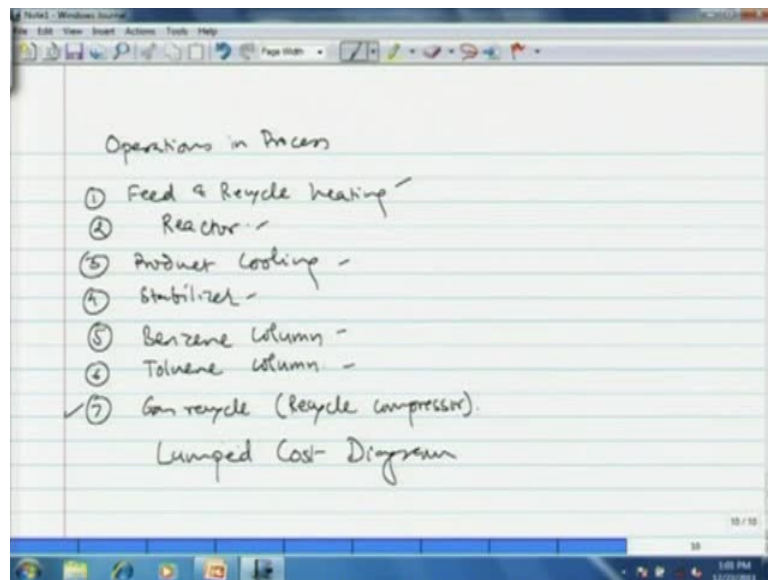 Note1 - Windows Journal
File Edit View Insert Actions Tools Help
Page Width
Operations in Process
① Feed & Recycle heating
② Reactor
③ Product Cooling -
④ Stabilizer -
⑤ Benzene Column -
⑥ Toluene column -
✓⑦ Gas recycle (Recycle compressor).
Lumped Cost Diagram
10 / 10
10
1:01 PM